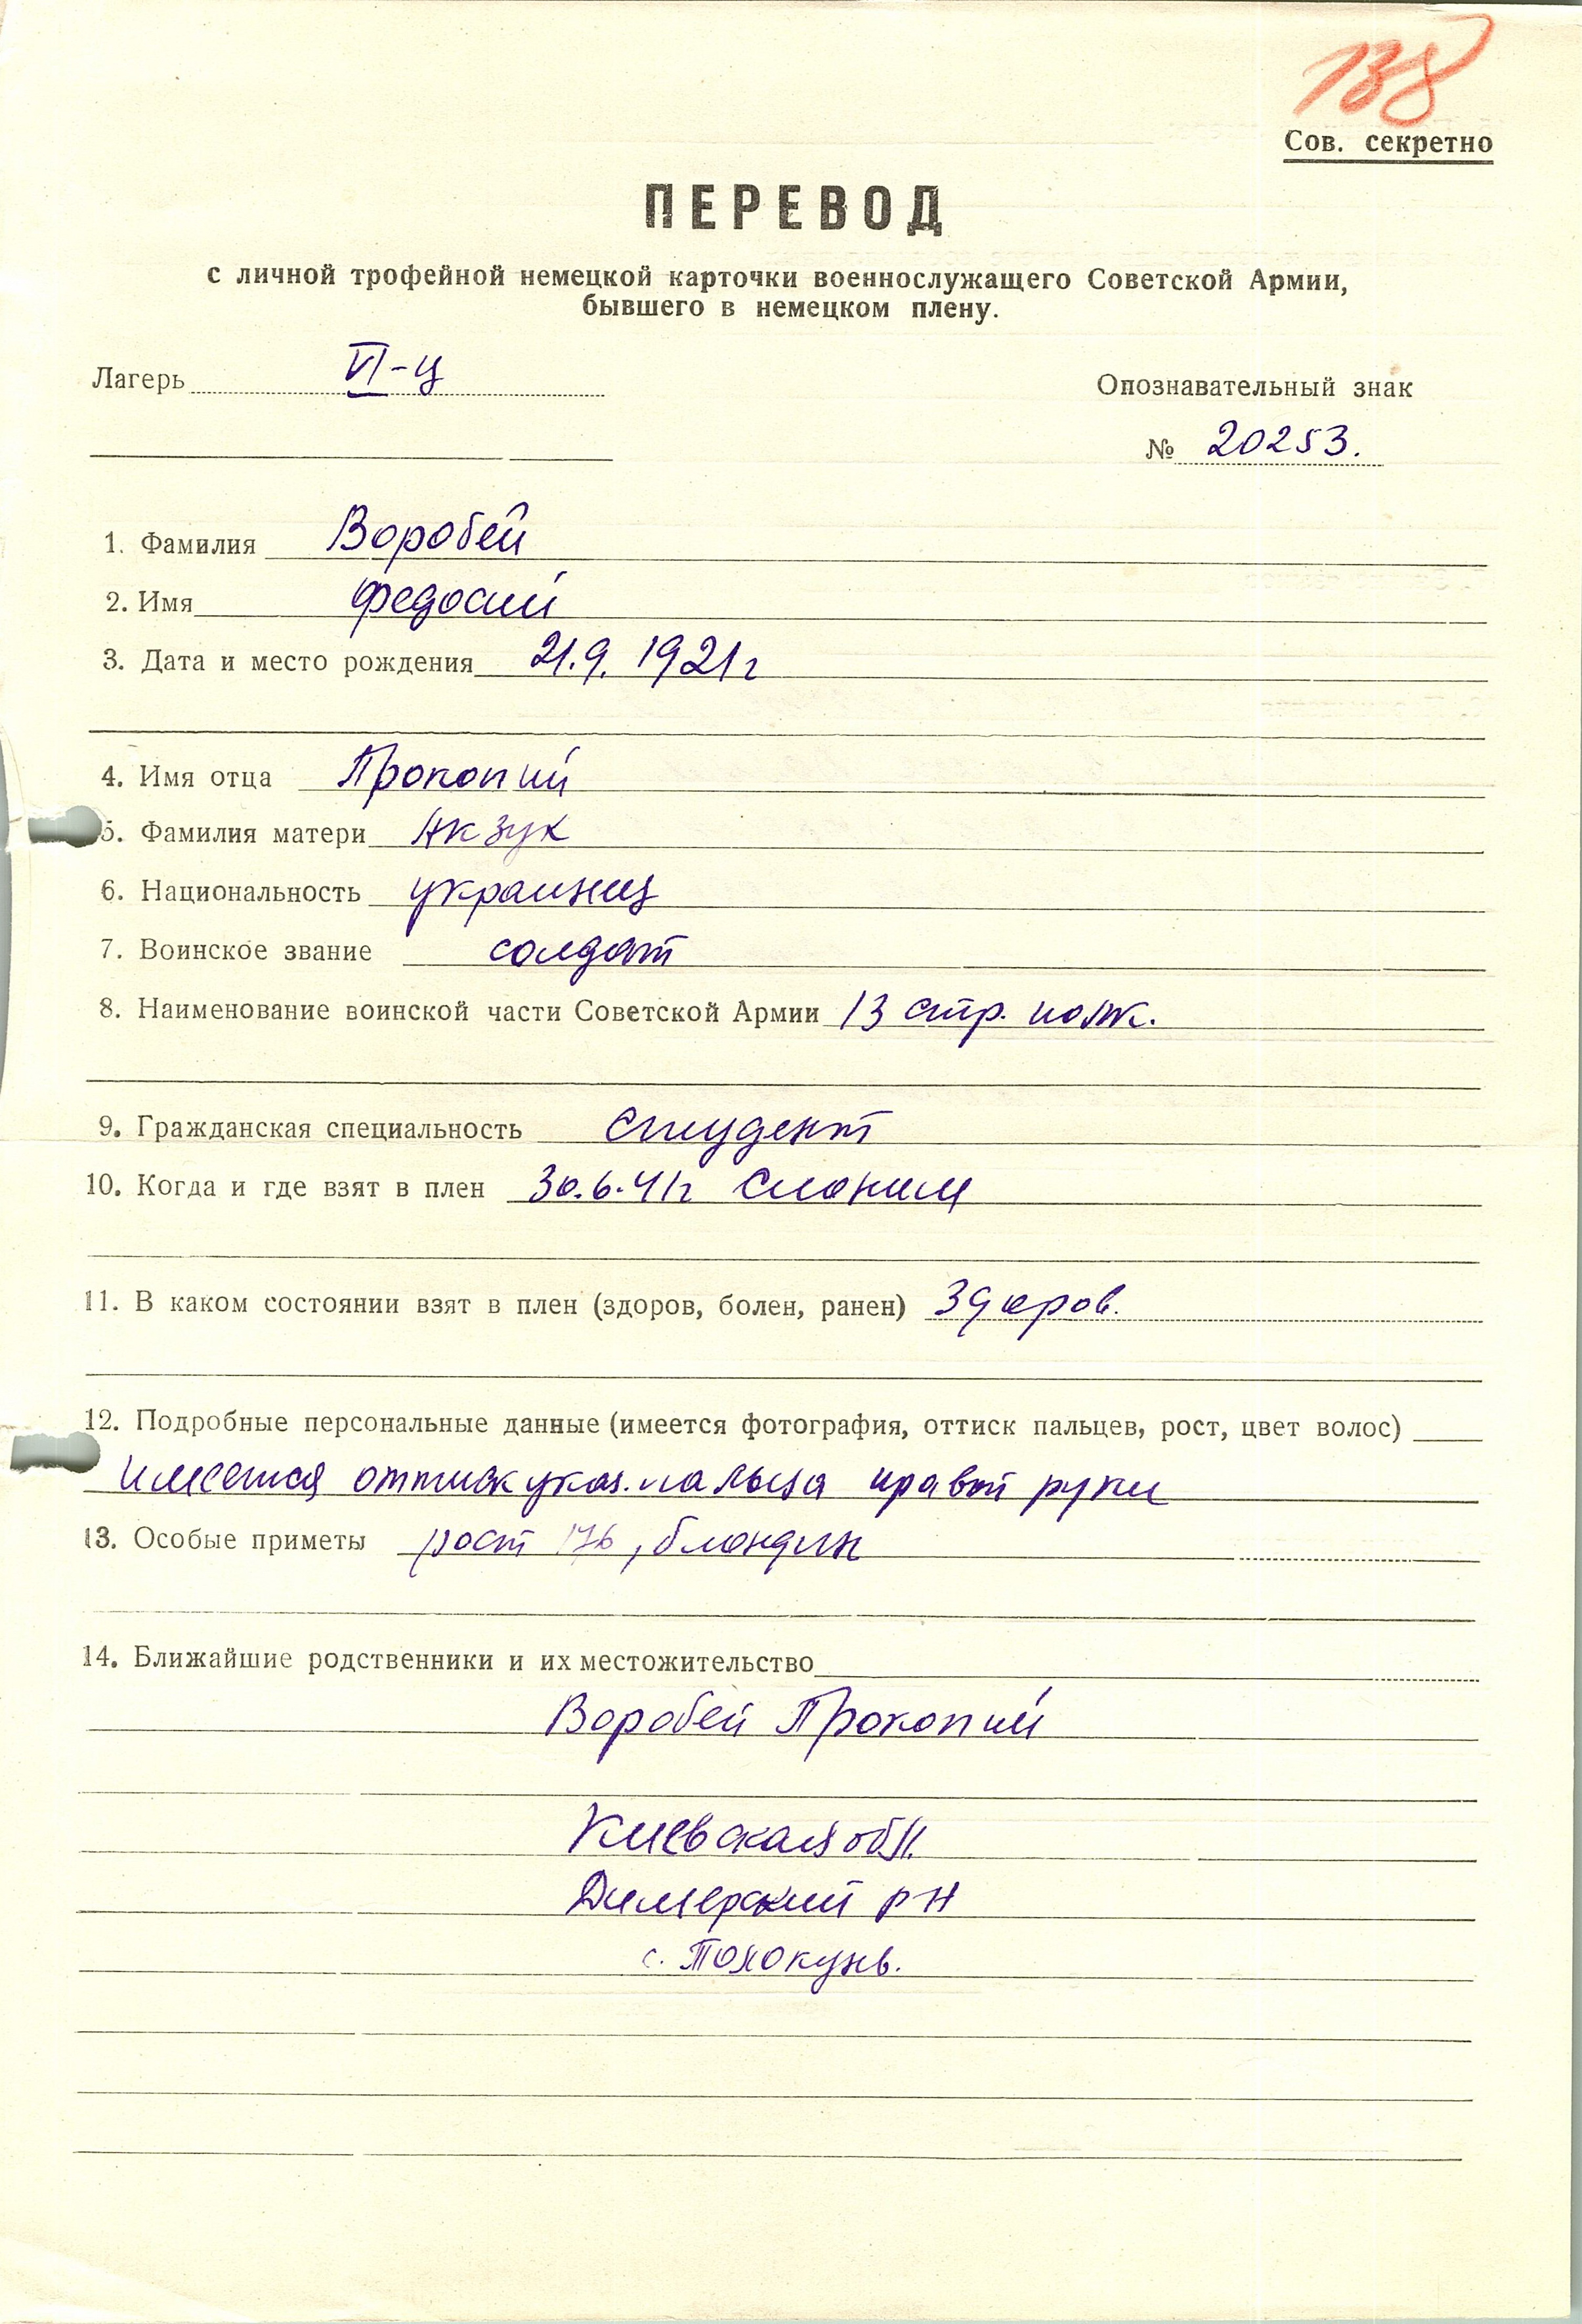 138
Сов. секретно
ПЕРЕВОД
с личной трофейной немецкой карточки военнослужащего Советской Армии,
бывшего в немецком плену.
Лагерь VI-ц
Опознавательный знак
№ 20253.
1. Фамилия Воробей
2. Имя Федосий
3. Дата и место рождения 21.9.1921г
4. Имя отца Прокопий
5. Фамилия матери Акзук
6. Национальность украинец
7. Воинское звание солдат
8. Наименование воинской части Советской Армии 13 стр. полк.
9. Гражданская специальность студент
10. Когда и где взят в плен 30.6.41г Слоним
11. В каком состоянии взят в плен (здоров, болен, ранен) Здоров.
12. Подробные персональные данные (имеется фотография, оттиск пальцев, рост, цвет волос)
имеется оттиск указ. пальца правой руки
13. Особые приметы рост 176, блондин
14. Ближайшие родственники и их местожительство
Воробей Прокопий
Киевская обл.
Димерский р-н
с. Толокунь.